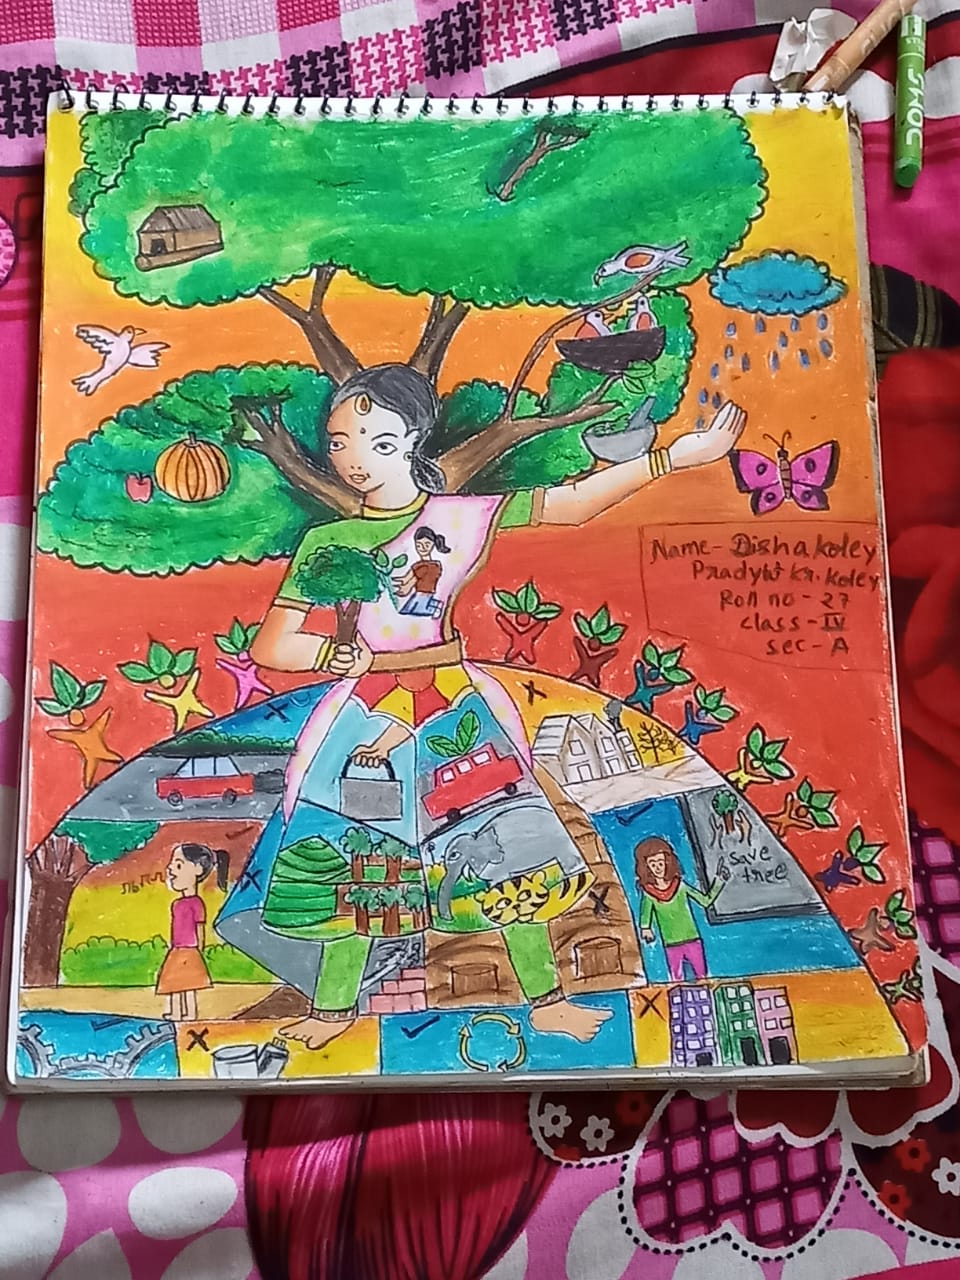 Name- Disha koley
Pradyut Kr. Koley
Roll no - 27
class - IV
sec - A
save
tree